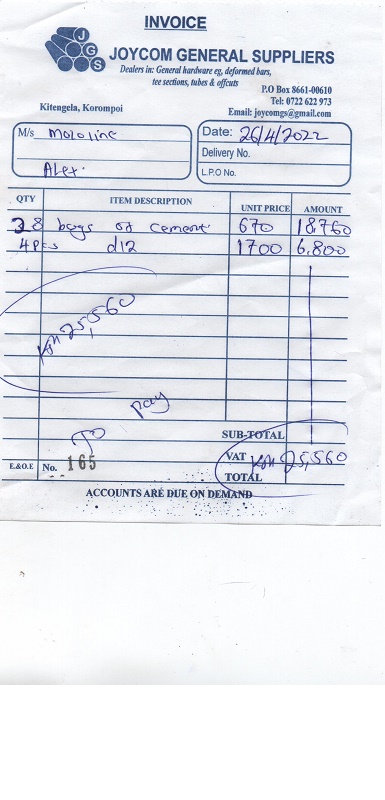 INVOICE
JGS
JOYCOM GENERAL SUPPLIERS
Dealers in: General hardware eg, deformed bars,
tee sections, tubes & offcuts
P.O Box 8661-00610
Tel: 0722 622 973
Kitengela, Korompoi
Email: joycomgs@gmail.com
M/s Mozoline
Alex.
Date: 26/4/2022
Delivery No.
L.P.O No.
QTY ITEM DESCRIPTION UNIT PRICE AMOUNT
28 bags of cement 670 18,760
4pcs d12 1700 6,800
Ksh 25,560
To pay
SUB-TOTAL
VAT Ksh 25,560
TOTAL
E.&O.E No. 165
ACCOUNTS ARE DUE ON DEMAND